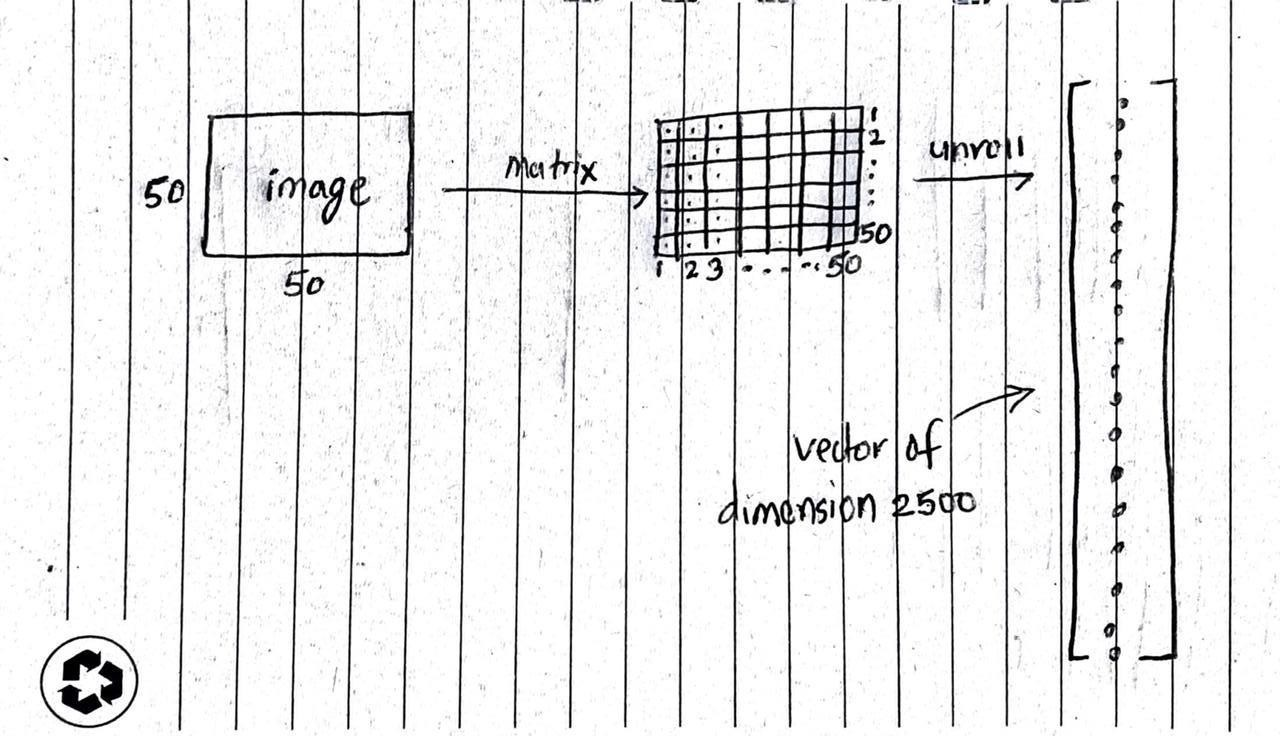 50
image
50
matrix
1
2
:
:
50
1 2 3 - - - - .. 50
unroll
vector of
dimension 2500